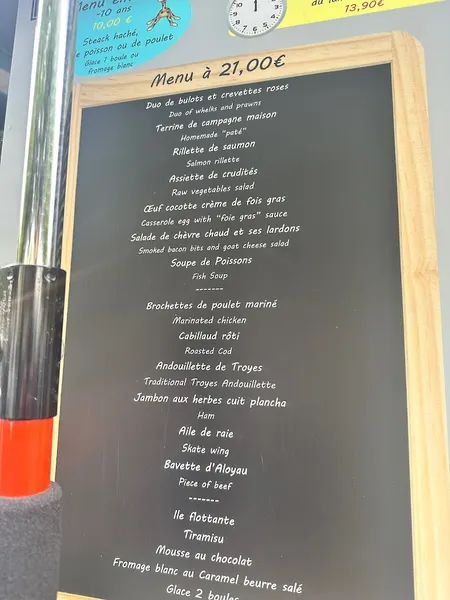 -10 ans
10,00 €
Steack haché,
poisson ou de poulet
Glace 1 boule ou
fromage blanc
13,90€
Menu à 21,00€
Duo de bulots et crevettes roses
Duo of whelks and prawns
Terrine de campagne maison
Homemade "paté"
Rillette de saumon
Salmon rillette
Assiette de crudités
Raw vegetables salad
Œuf cocotte crème de fois gras
Casserole egg with "foie gras" sauce
Salade de chèvre chaud et ses lardons
Smoked bacon bits and goat cheese salad
Soupe de Poissons
Fish Soup
-------
Brochettes de poulet mariné
Marinated chicken
Cabillaud rôti
Roasted Cod
Andouillette de Troyes
Traditional Troyes Andouillette
Jambon aux herbes cuit plancha
Ham
Aile de raie
Skate wing
Bavette d'Aloyau
Piece of beef
-------
Ile flottante
Tiramisu
Mousse au chocolat
Fromage blanc au Caramel beurre salé
Glace 2 boules